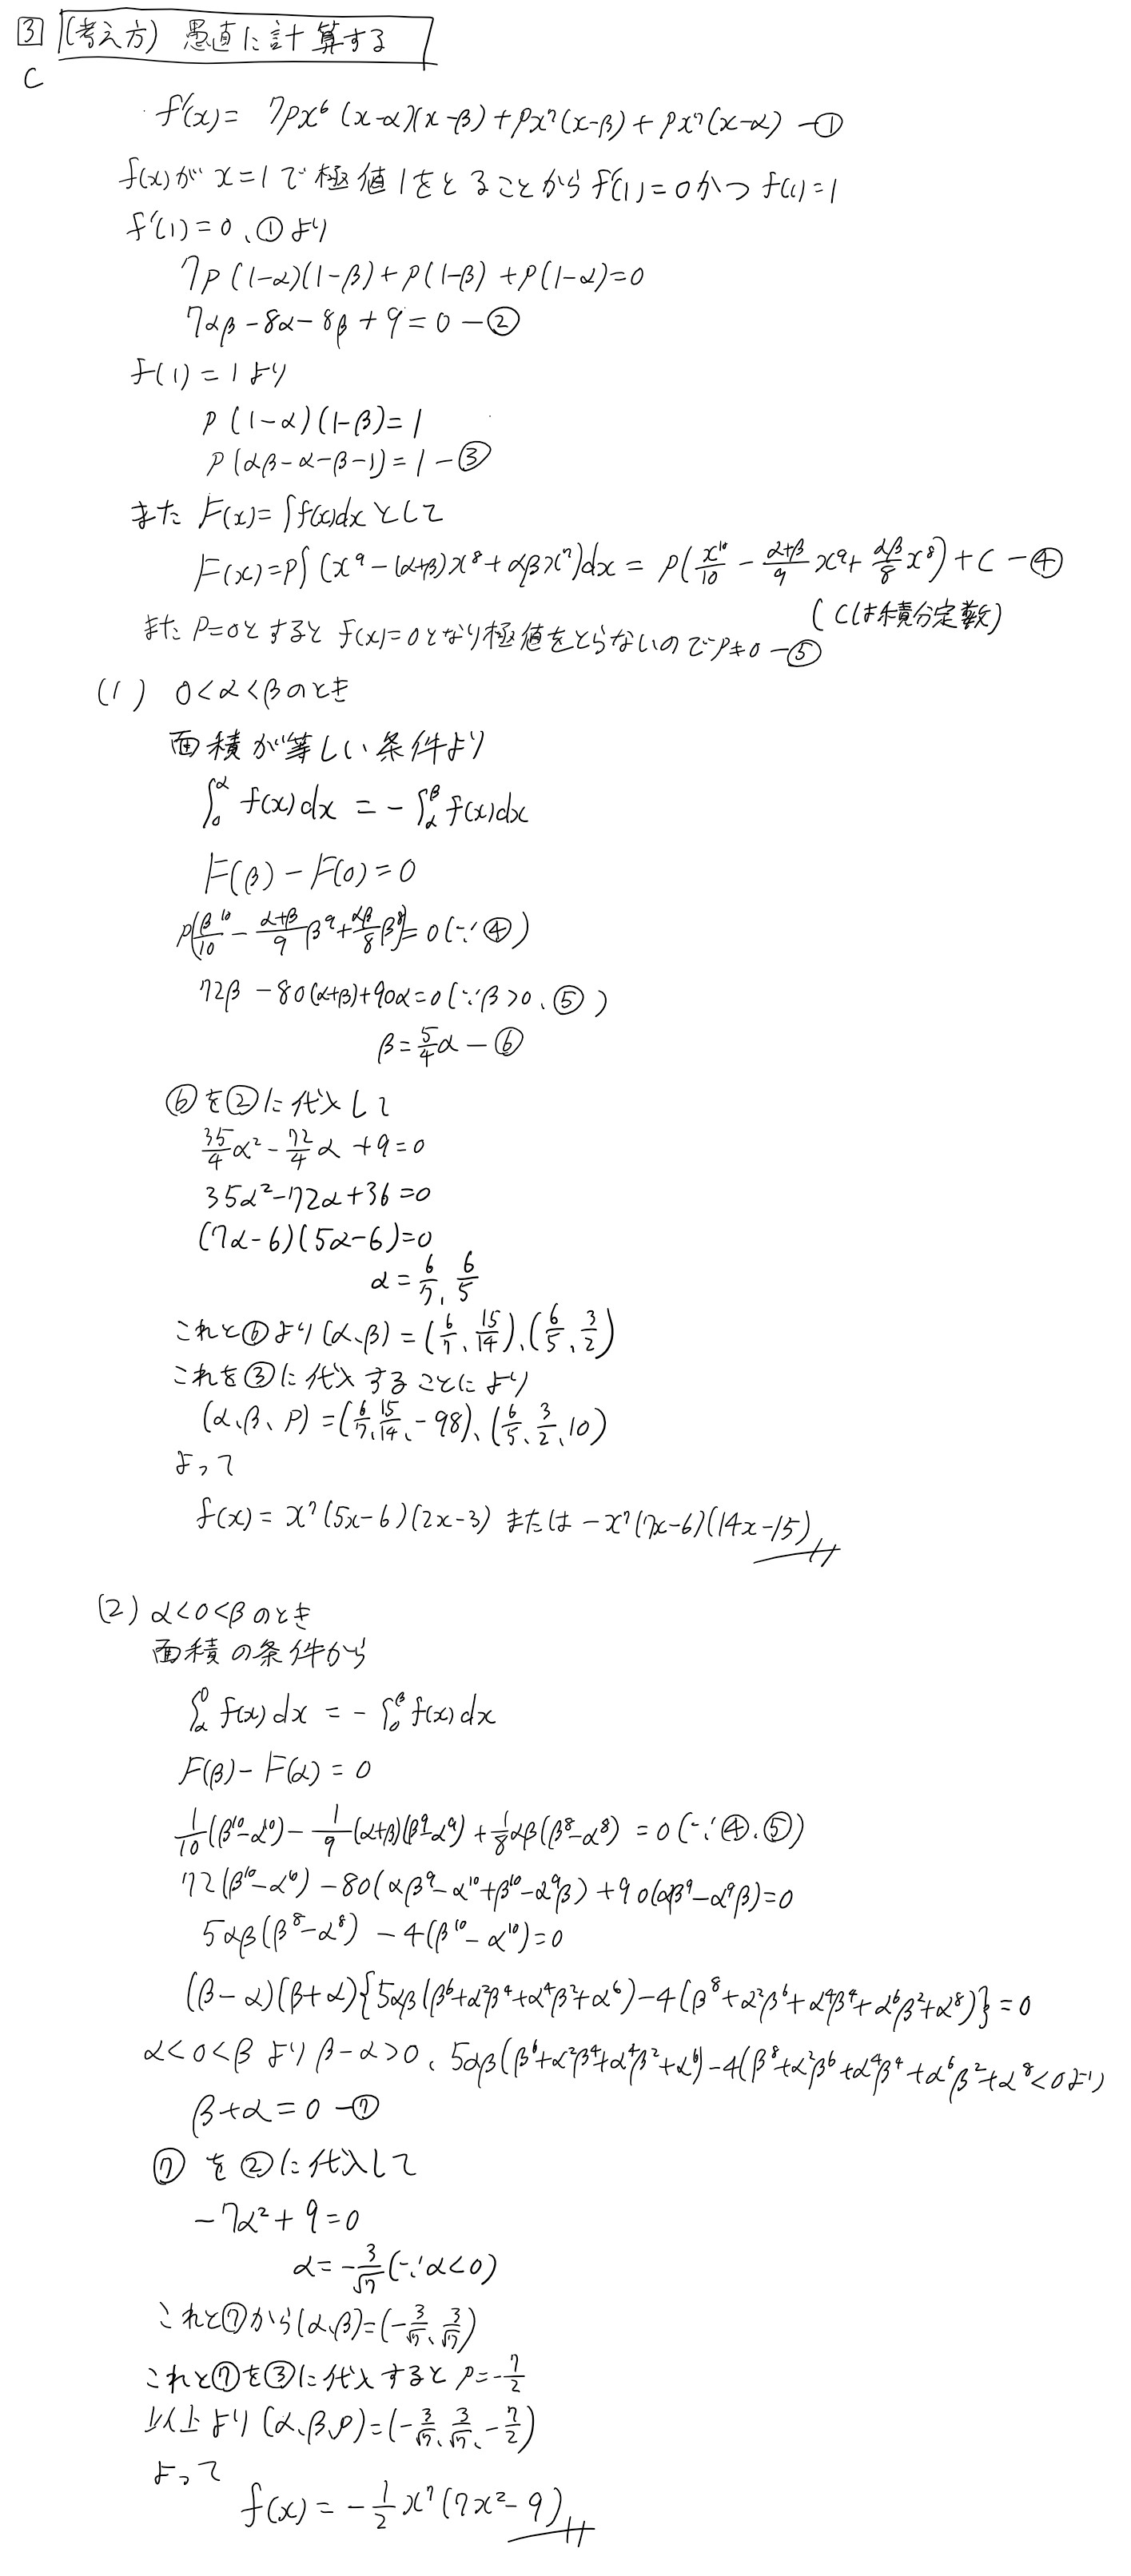 3 (考え方) 愚直に計算する
C
f'(x) = 7px⁶(x-α)(x-β)+px⁷(x-β)+px⁷(x-α) -①
f(x)が x=1で極値1をとることからf'(1)=0かつf(1)=1
f'(1)=0、①より
7p(1-α)(1-β)+p(1-β)+p(1-α)=0
7αβ-8α-8β+9=0 -②
f(1)=1より
p(1-α)(1-β)=1
p(αβ-α-β-1)=1 -③
また F(x)=∫f(x)dxとして
F(x)=p∫(x⁹-(α+β)x⁸+αβx⁷)dx = p(x¹⁰/10 - (α+β)/9 x⁹+ αβ/8 x⁸)+C -④
(Cは積分定数)
また p=0とすると f(x)=0となり極値をとらないのでp≠0 -⑤
(1) 0<α<βのとき
面積が等しい条件より
∫₀^α f(x)dx = -∫_α^β f(x)dx
F(β)-F(0)=0
p(β¹⁰/10 - (α+β)/9 β⁹+ αβ/8 β⁸)=0(∵④)
72β-80(α+β)+90α=0(∵β>0、⑤)
β=5/4 α -⑥
⑥を②に代入して
35/4 α² - 72/4 α +9=0
35α²-72α+36=0
(7α-6)(5α-6)=0
α=6/7、6/5
これと⑥より(α、β)=(6/7、15/14)、(6/5、3/2)
これを③に代入することにより
(α、β、p)=(6/7、15/14、-98)、(6/5、3/2、10)
よって
f(x)=x⁷(5x-6)(2x-3) または -x⁷(7x-6)(14x-15)
(2) α<0<βのとき
面積の条件から
∫_α^0 f(x)dx = -∫₀^β f(x)dx
F(β)-F(α)=0
1/10(β¹⁰-α¹⁰)- 1/9(α+β)(β⁹-α⁹)+ 1/8 αβ(β⁸-α⁸) =0(∵④、⑤)
72(β¹⁰-α¹⁰)-80(αβ⁹-α¹⁰+β¹⁰-α⁹β)+90(αβ⁹-α⁹β)=0
5αβ(β⁸-α⁸)-4(β¹⁰-α¹⁰)=0
(β-α)(β+α){5αβ(β⁶+α²β⁴+α⁴β²+α⁶)-4(β⁸+α²β⁶+α⁴β⁴+α⁶β²+α⁸)}=0
α<0<βよりβ-α>0、5αβ(β⁶+α²β⁴+α⁴β²+α⁶)-4(β⁸+α²β⁶+α⁴β⁴+α⁶β²+α⁸<0より
β+α=0 -⑦
⑦を②に代入して
-7α²+9=0
α=-3/√7(∵α<0)
これと⑦から(α、β)=(-3/√7、3/√7)
これと⑦を③に代入するとp=-7/2
以上より(α、β、p)=(-3/√7、3/√7、-7/2)
よって
f(x)=-1/2 x⁷(7x²-9)